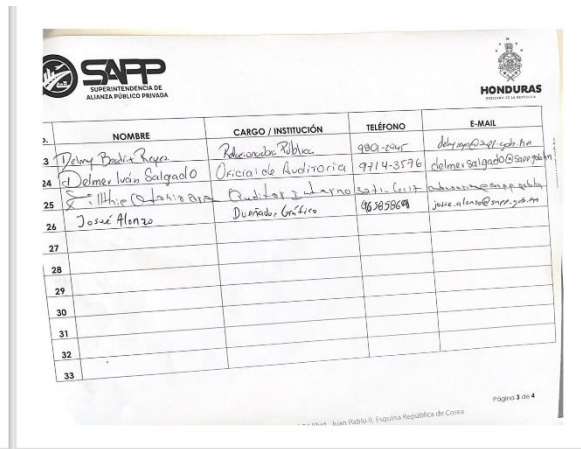 SAPP
SUPERINTENDENCIA DE
ALIANZA PÚBLICO PRIVADA
HONDURAS
GOBIERNO DE LA REPÚBLICA
NOMBRE CARGO / INSTITUCIÓN TELÉFONO E-MAIL
3 Delmy Reyes 9801-2045
24 Delmer Iván Salgado Oficial de Auditoria 9714-3576 delmer.salgado@sapp.gob.hn
25 Auditor Interno
26 Josué Alonzo Diseñador Gráfico josue.alonzo@sapp.gob.hn
27
28
29
30
31
32
33
Página 3 de 4
Juan Pablo II, Esquina República de Corea